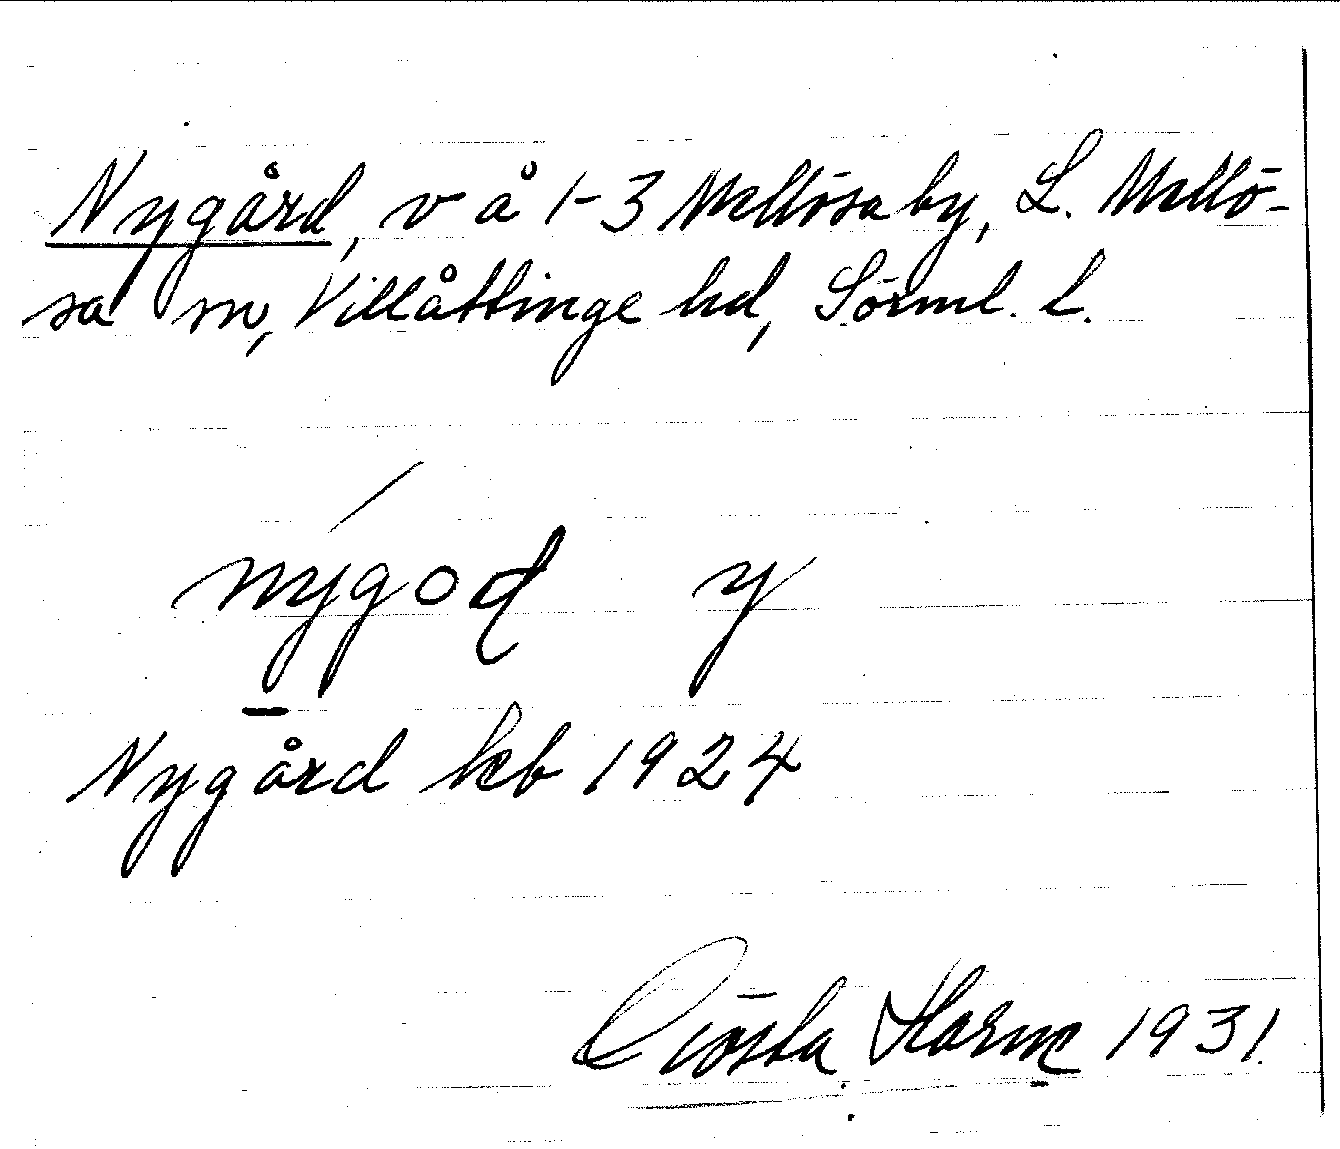 Nygård, v å 1-3 Mellösa by, L. Mellö-
sa sn, Villåttinge hd, Sörml. l.
nýgoḍ y
Nygård kb 1924
Gösta Harm 1931.